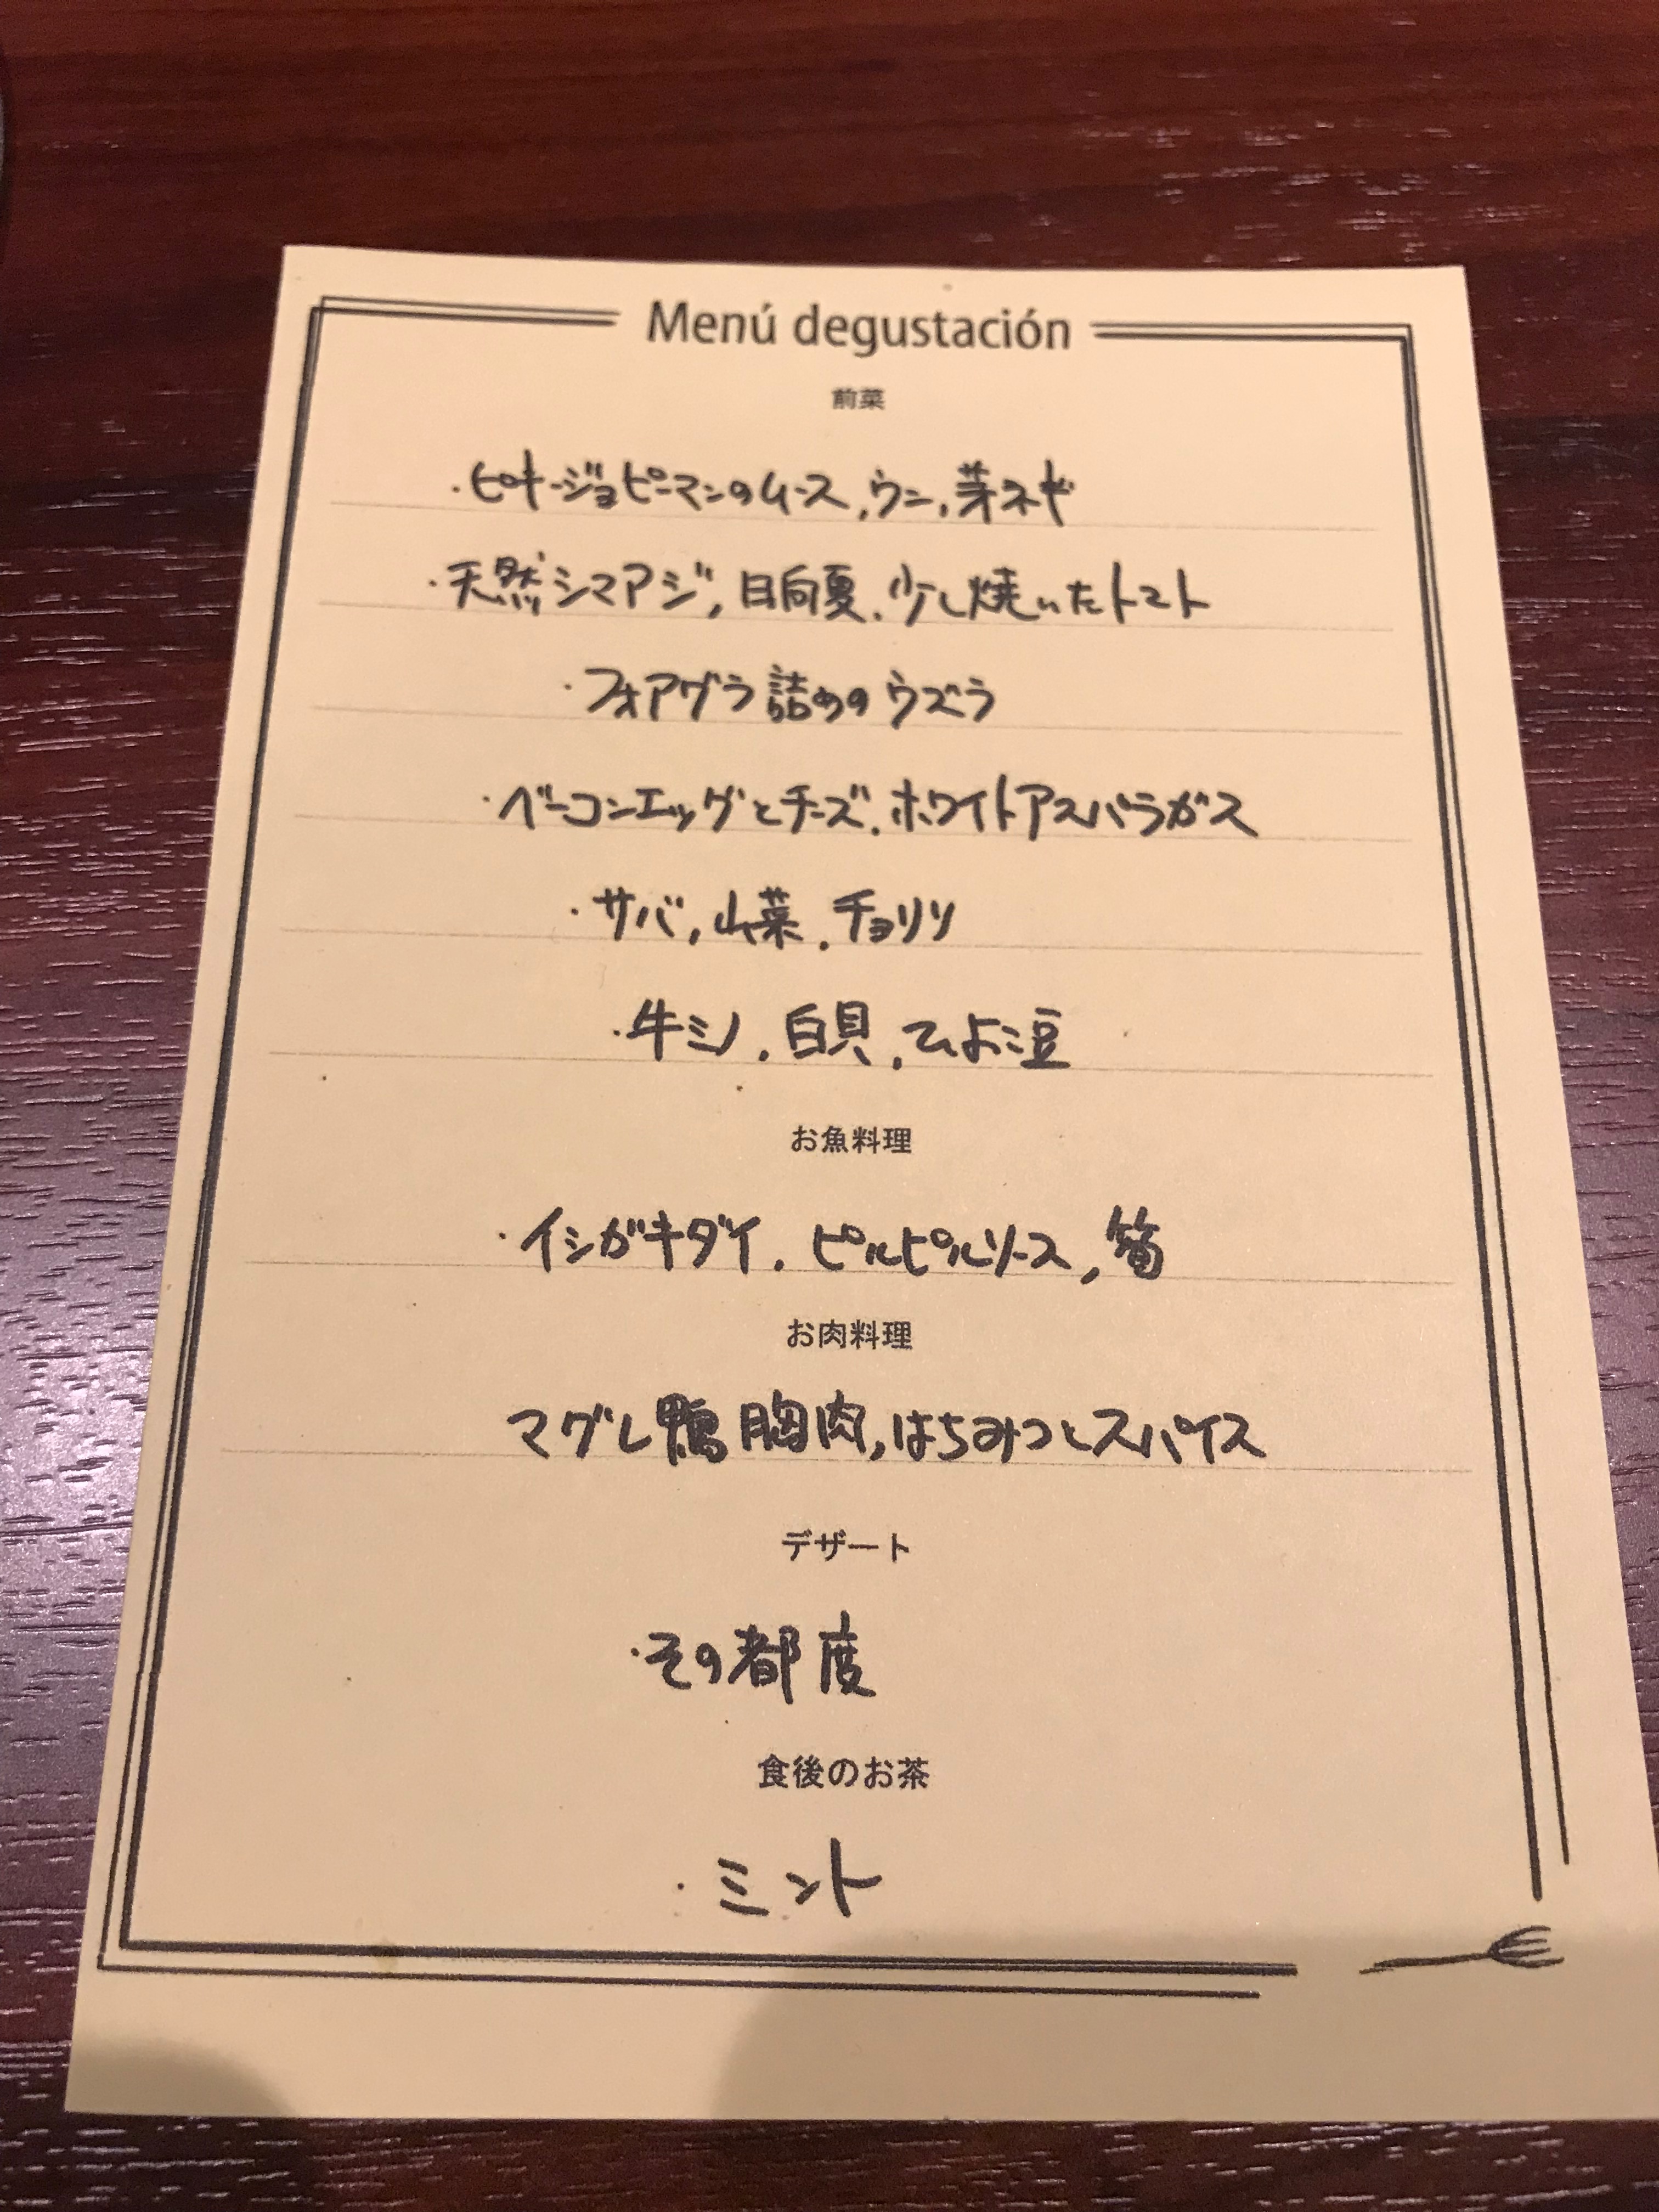 Menú degustación
前菜
・ピキージョピーマンのムース,ウニ,芽ネギ
・天然シマアジ,日向夏,少し焼いたトマト
・フォアグラ詰めのウズラ
・ベーコンエッグとチーズ,ホワイトアスパラガス
・サバ,山菜,チョリソ
・牛ミノ,白貝,ひよこ豆
お魚料理
・イシガキダイ,ピルピルソース,筍
お肉料理
マグレ鴨胸肉,はちみつとスパイス
デザート
・その都度
食後のお茶
・ミント